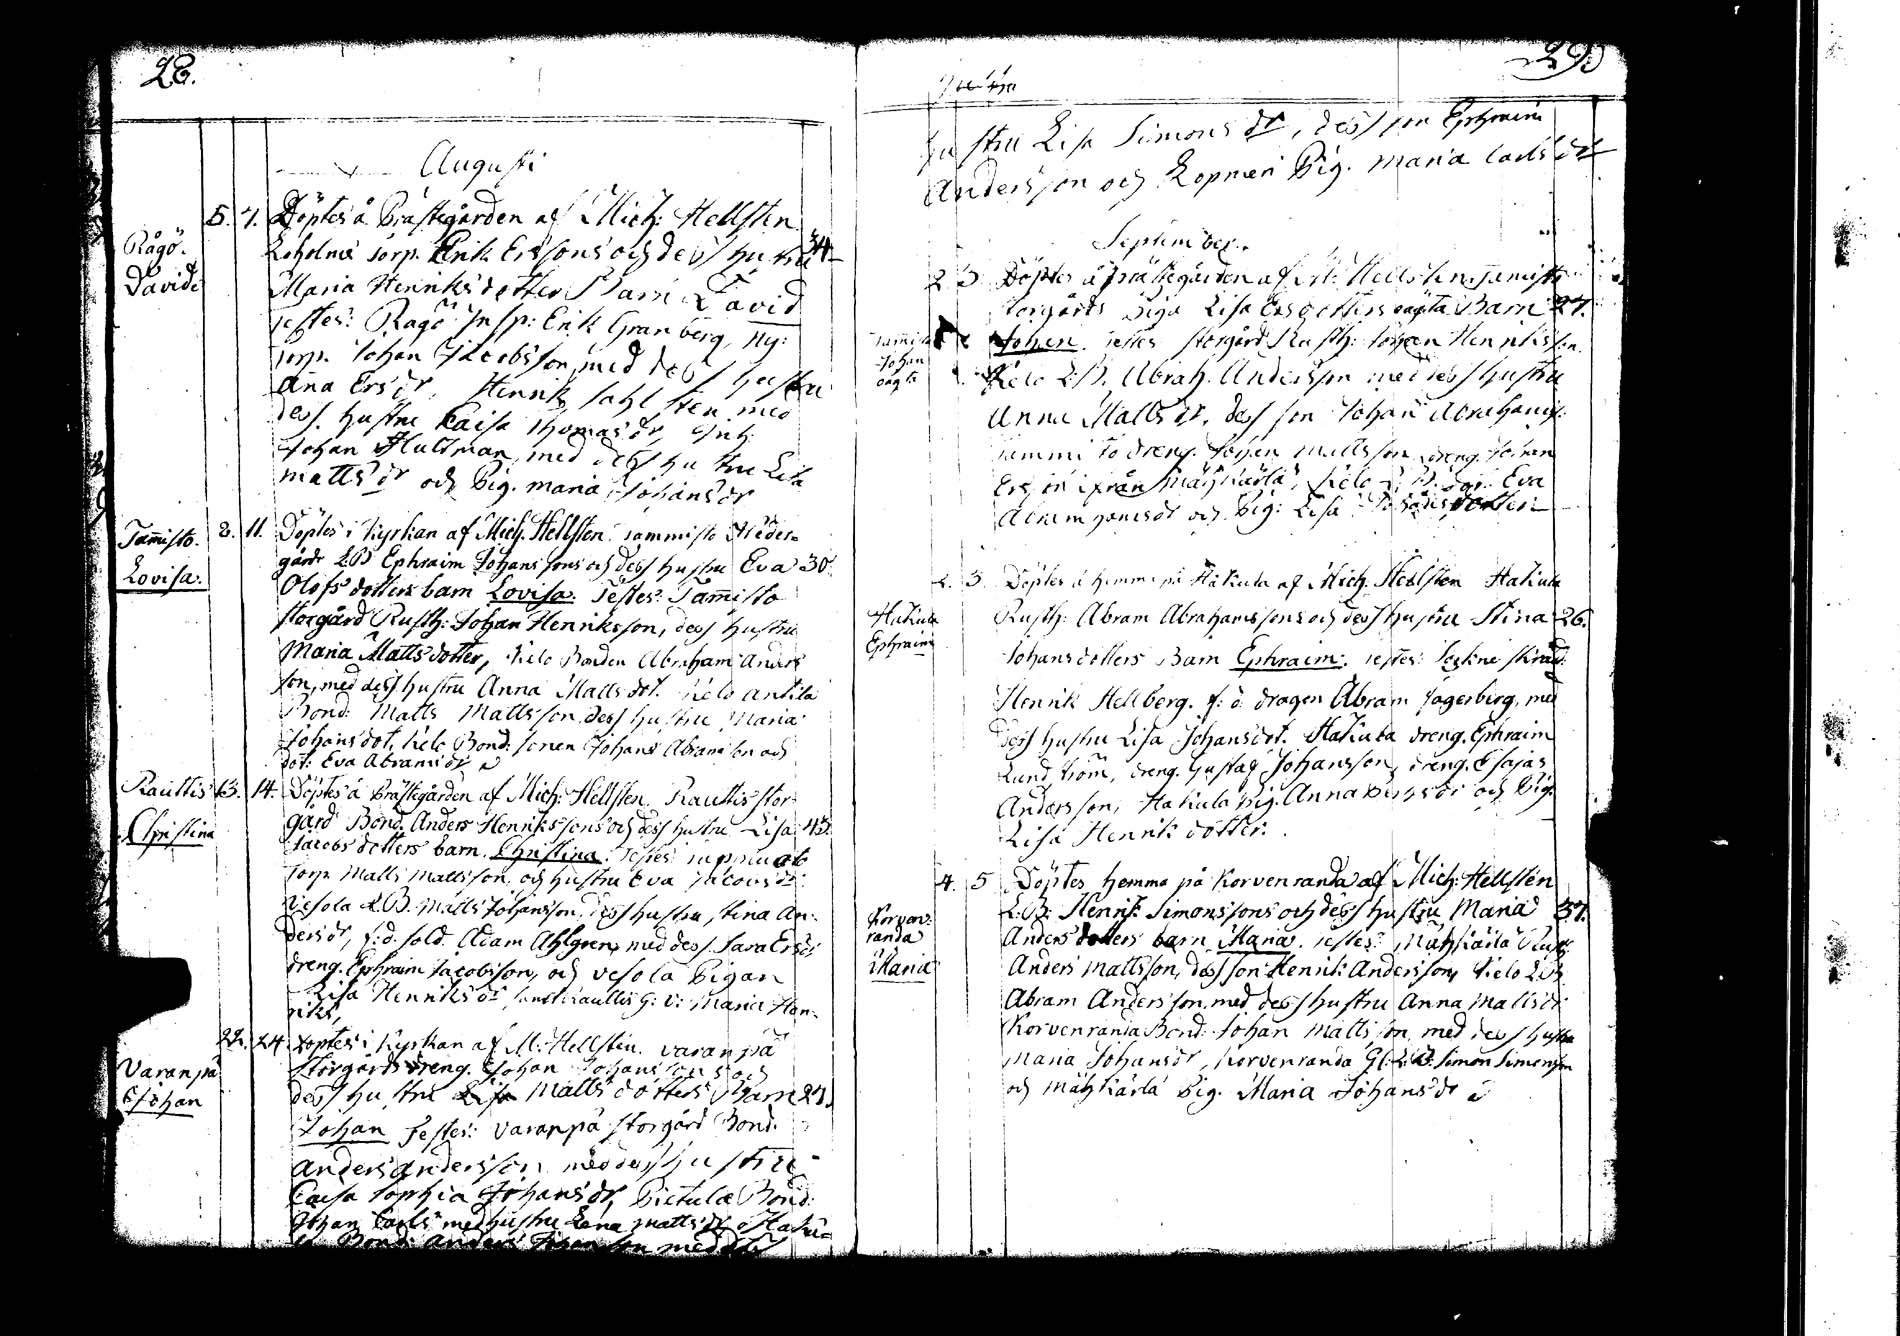 28.
Augusti
Rågö.
David
5. 7. Döptes å Prästegården af Mich: Hellsten
Loholms Torp. Erik Ersons och dess hustru 34
Maria Henriksdotter Barn David
testes: Rågö Insp: Erik Granberg, Ny:
torp. Johan Jacobsson, med dess hustru
Ana Ersdr, Henrik Sahlsten med
dess hustru Caisa Thomasdr, Inh:
Johan Hultman, med dess hustru Lisa
Mattsdr och Pig. Maria Johansdr
Tamisto.
Lovisa.
8. 11. Döptes i Kyrkan af Mich. Hellsten Tammisto Neder-
gårds L.B Ephraim Johanssons och dess hustru Eva 30
Olofsdotters barn Lovisa. Testes: Tamisto
storgård Rusth: Johan Henriksson, dess hustru
Maria Mattsdotter, Kelo Bonden Abraham Anders
son, med dess hustru Anna Mattsdot. Kelo Antila
Bond: Matts Mattsson, dess hustru Maria
Johansdot, Kelo Bond: sonen Johan Abramson och
dot: Eva Abramsdr
Rauttis
Christina
13. 14. Döptes å Prästegården af Mich: Hellsten. Rauttis stor
gård Bond. Anders Henrikssons och dess hustru Lisa 43.
Jacobsdotters barn. Christina. Testes:
Torp. Matts Mattsson, och hustru Eva Jacobsdr
Vesola L.B. Matts Johansson, dess hustru Stina An-
dersdr, f:d. sold. Adam Ahlgren, med dess Sara Ersdr
dreng. Ephraim Jacobsson, och Vesola Pigan
Lisa Henriksdr samt Rauttis G: V: Maria Hen-
riks,
Varanpä
Johan
22. 24. Döptes i Kyrkan af M: Hellsten. Varanpä
Storgårds dreng. Johan Johanssons och
dess hustru Lisa Mattsdotters Barn 27.
Johan Testes: Varanpä storgård Bond.
Anders Andersson med dess hustru
Caisa Sophia Johansdr, Pietula Bond:
Johan Carls med hustru Lena Mattsdr Haku-
la Bond: Anders Johansson med dess
29.
hustru Lisa Simonsdr, dess son Ephraim
Andersson och Pig. Maria Carlsdr
September.
Tamisto
Johan
oägta
2 3 Döptes å Prästegården af M: Hellsten Tamisto
storgårds Piga Lisa Ersdotters oägta Barn 27.
Johan. Testes storgård Rusth: Johan Henriksson.
Kelo L:B. Abrah. Andersson med dess hustru
Anna Mattsdr, dess son Johan Abrahams:
Tammisto dreng. Johan Mattsson dreng. Johan
Ersson ifrån Mäyhkärlä, Kelo Eva
Abramsdr och Pig: Lisa Johansdotter
Hakula
Ephraim
2. 3. Döptes hemma på Hakula af Mich. Hellsten Hakula
Rusth: Abram Abrahamssons och dess hustru Stina 26.
Johansdotters Barn Ephraim. Testes: Sockne skräd:
Henrik Hellberg. f: d: dragon Abram Fagerberg, med
dess hustru Lisa Johansdot. Hakula dreng. Ephraim
Lundström, dreng. Gustaf Johansson, dreng. Esajas
Andersson, Hakula Pig. Anna och Pig.
Lisa Henriksdotter.
Korven-
randa
Maria
4. 5 Döptes hemma på Korvenranda af Mich: Hellsten
L:B: Henrik Simonssons och dess hustru Maria 37.
Andersdotters barn Maria. Testes: Mäyhkärlä Rusth
Anders Mattsson, dess son Henrik Andersson, Kelo L:B
Abram Andersson, med dess hustru Anna Mattsdr
Korvenranda Bond: Johan Mattsson med dess hustru
Maria Johansdr, Korvenranda Gl: L:B: Simon Simonsson
och Mäyhkärlä Pig. Maria Johansdr